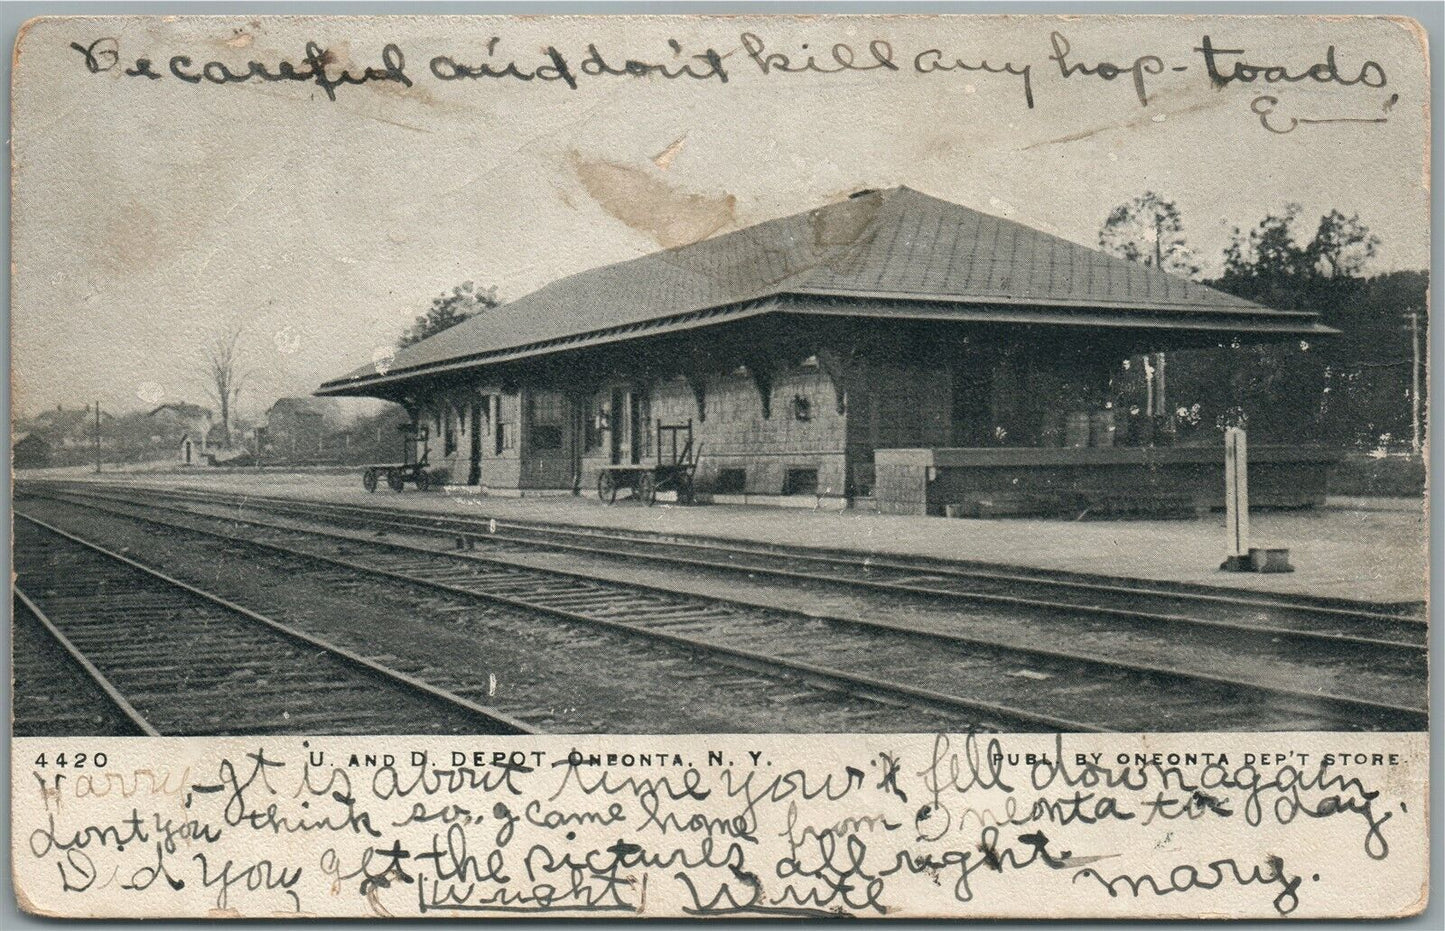 Be careful and don't kill any hop-toads,
E
4420 U. AND D. DEPOT, ONEONTA, N. Y. PUBL. BY ONEONTA DEP'T STORE.
Harry,- It is about time you fell down again
dont you think so. I came home from Oneonta to day.
Did you get the pictures all right. Mary.
(Wright) Write